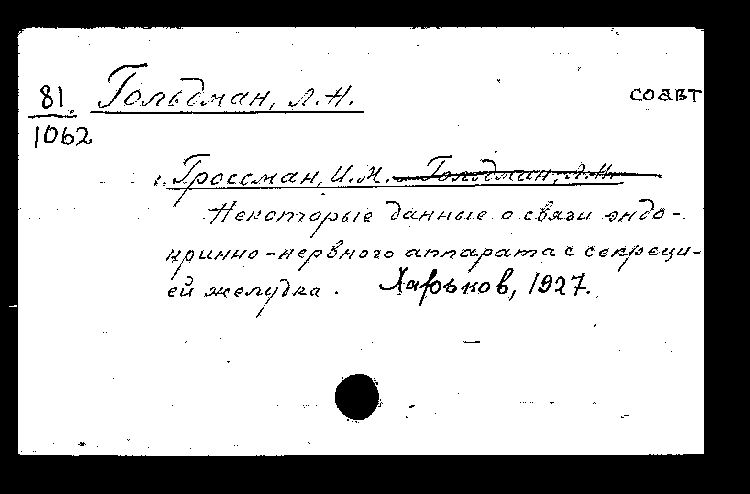 81 Гольдман, Л.Н. соавт
1062
Гроссман, И.М. Гольдман, Л.Н.
Некоторые данные о связи эндо-
кринно-нервного аппарата с секреци-
ей желудка. Харьков, 1927.